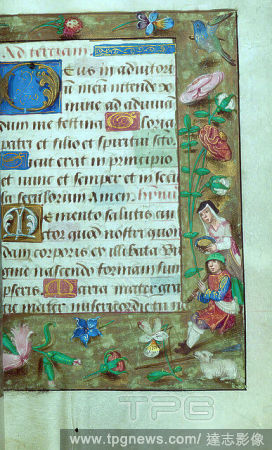 Ad tertiam
Deus in adiutori
um meum intende do
mine ad adiuvā
dum me festina Gloria
patri et filio et spiritui sctō
Sicut erat in principio
et nunc et semper et in secu
la seculorum Amen
Memento salutis auc
tor quod nostri quon
dam corporis ex illibata vir
gine nascendo formam sum
pseris Maria mater gra
tie mater misericordie tu
TPG
www.tpgnews.com / 達志影像